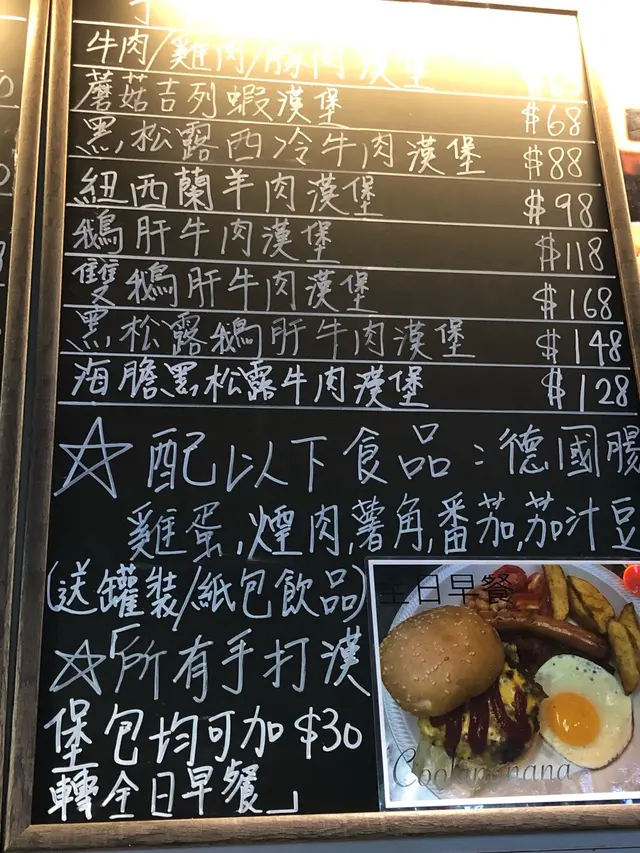 牛肉/雞肉/豚肉漢堡
蘑菇吉列蝦漢堡 $68
黑松露西冷牛肉漢堡 $88
紐西蘭羊肉漢堡 $98
鵝肝牛肉漢堡 $118
雙鵝肝牛肉漢堡 $168
黑松露鵝肝牛肉漢堡 $148
海膽黑松露牛肉漢堡 $128
☆配以下食品：德國腸
雞蛋,煙肉,薯角,番茄,茄汁豆
(送罐裝/紙包飲品)
☆「所有手打漢
堡包均可加$30
轉全日早餐」
全日早餐